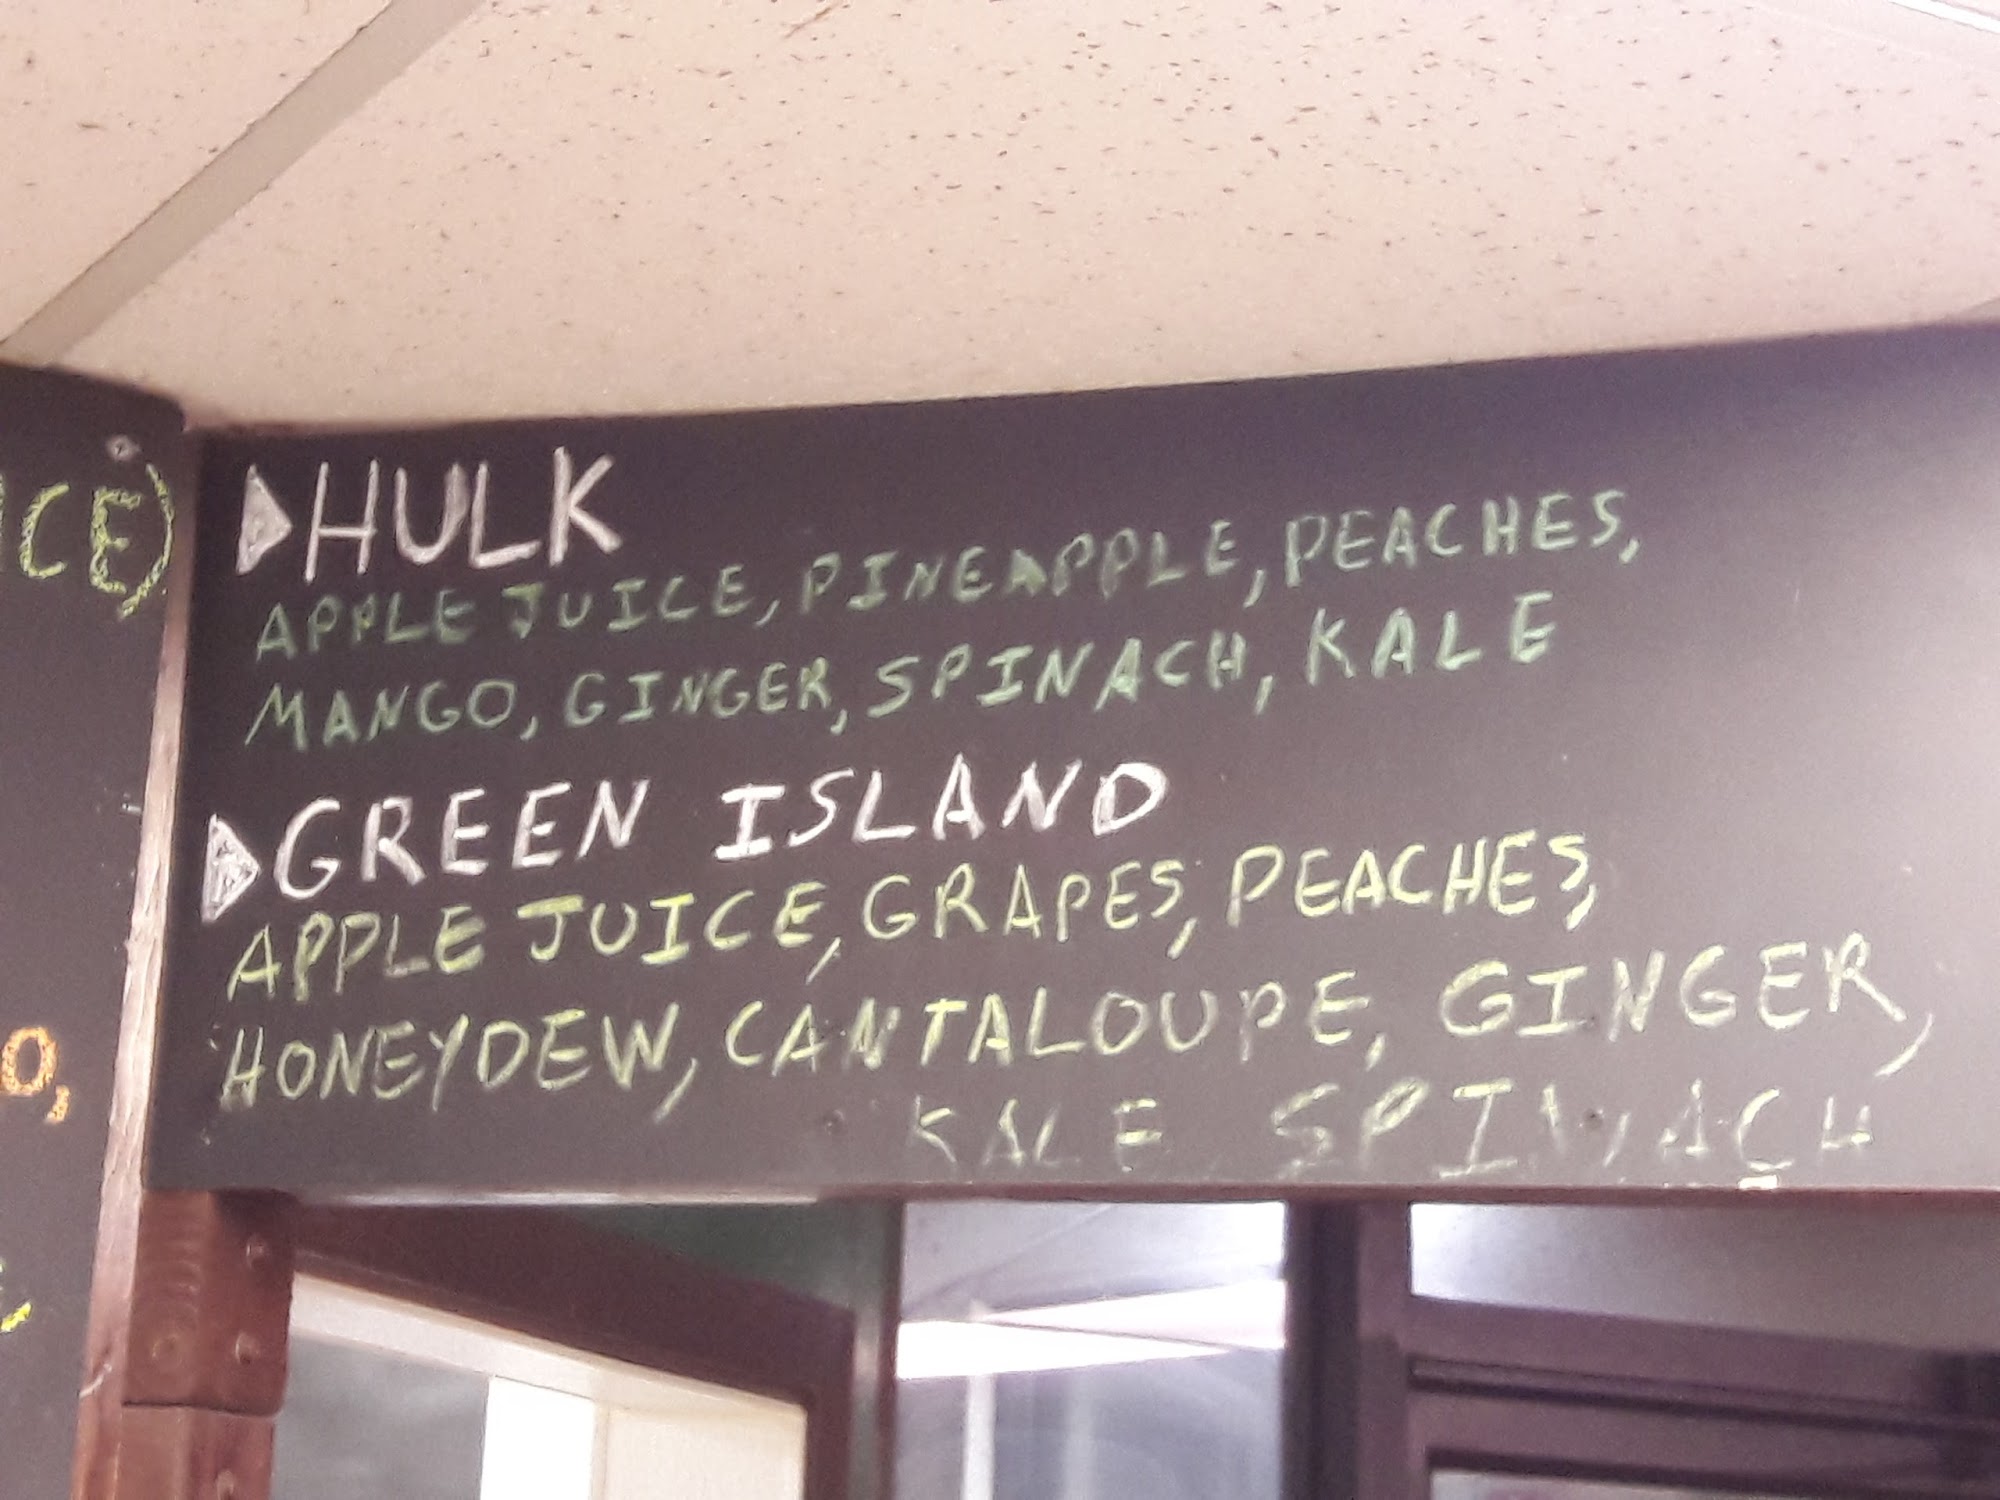 ICE)
O,
HULK
APPLE JUICE, PINEAPPLE, PEACHES,
MANGO, GINGER, SPINACH, KALE
GREEN ISLAND
APPLE JUICE, GRAPES, PEACHES,
HONEYDEW, CANTALOUPE, GINGER,
KALE, SPINACH